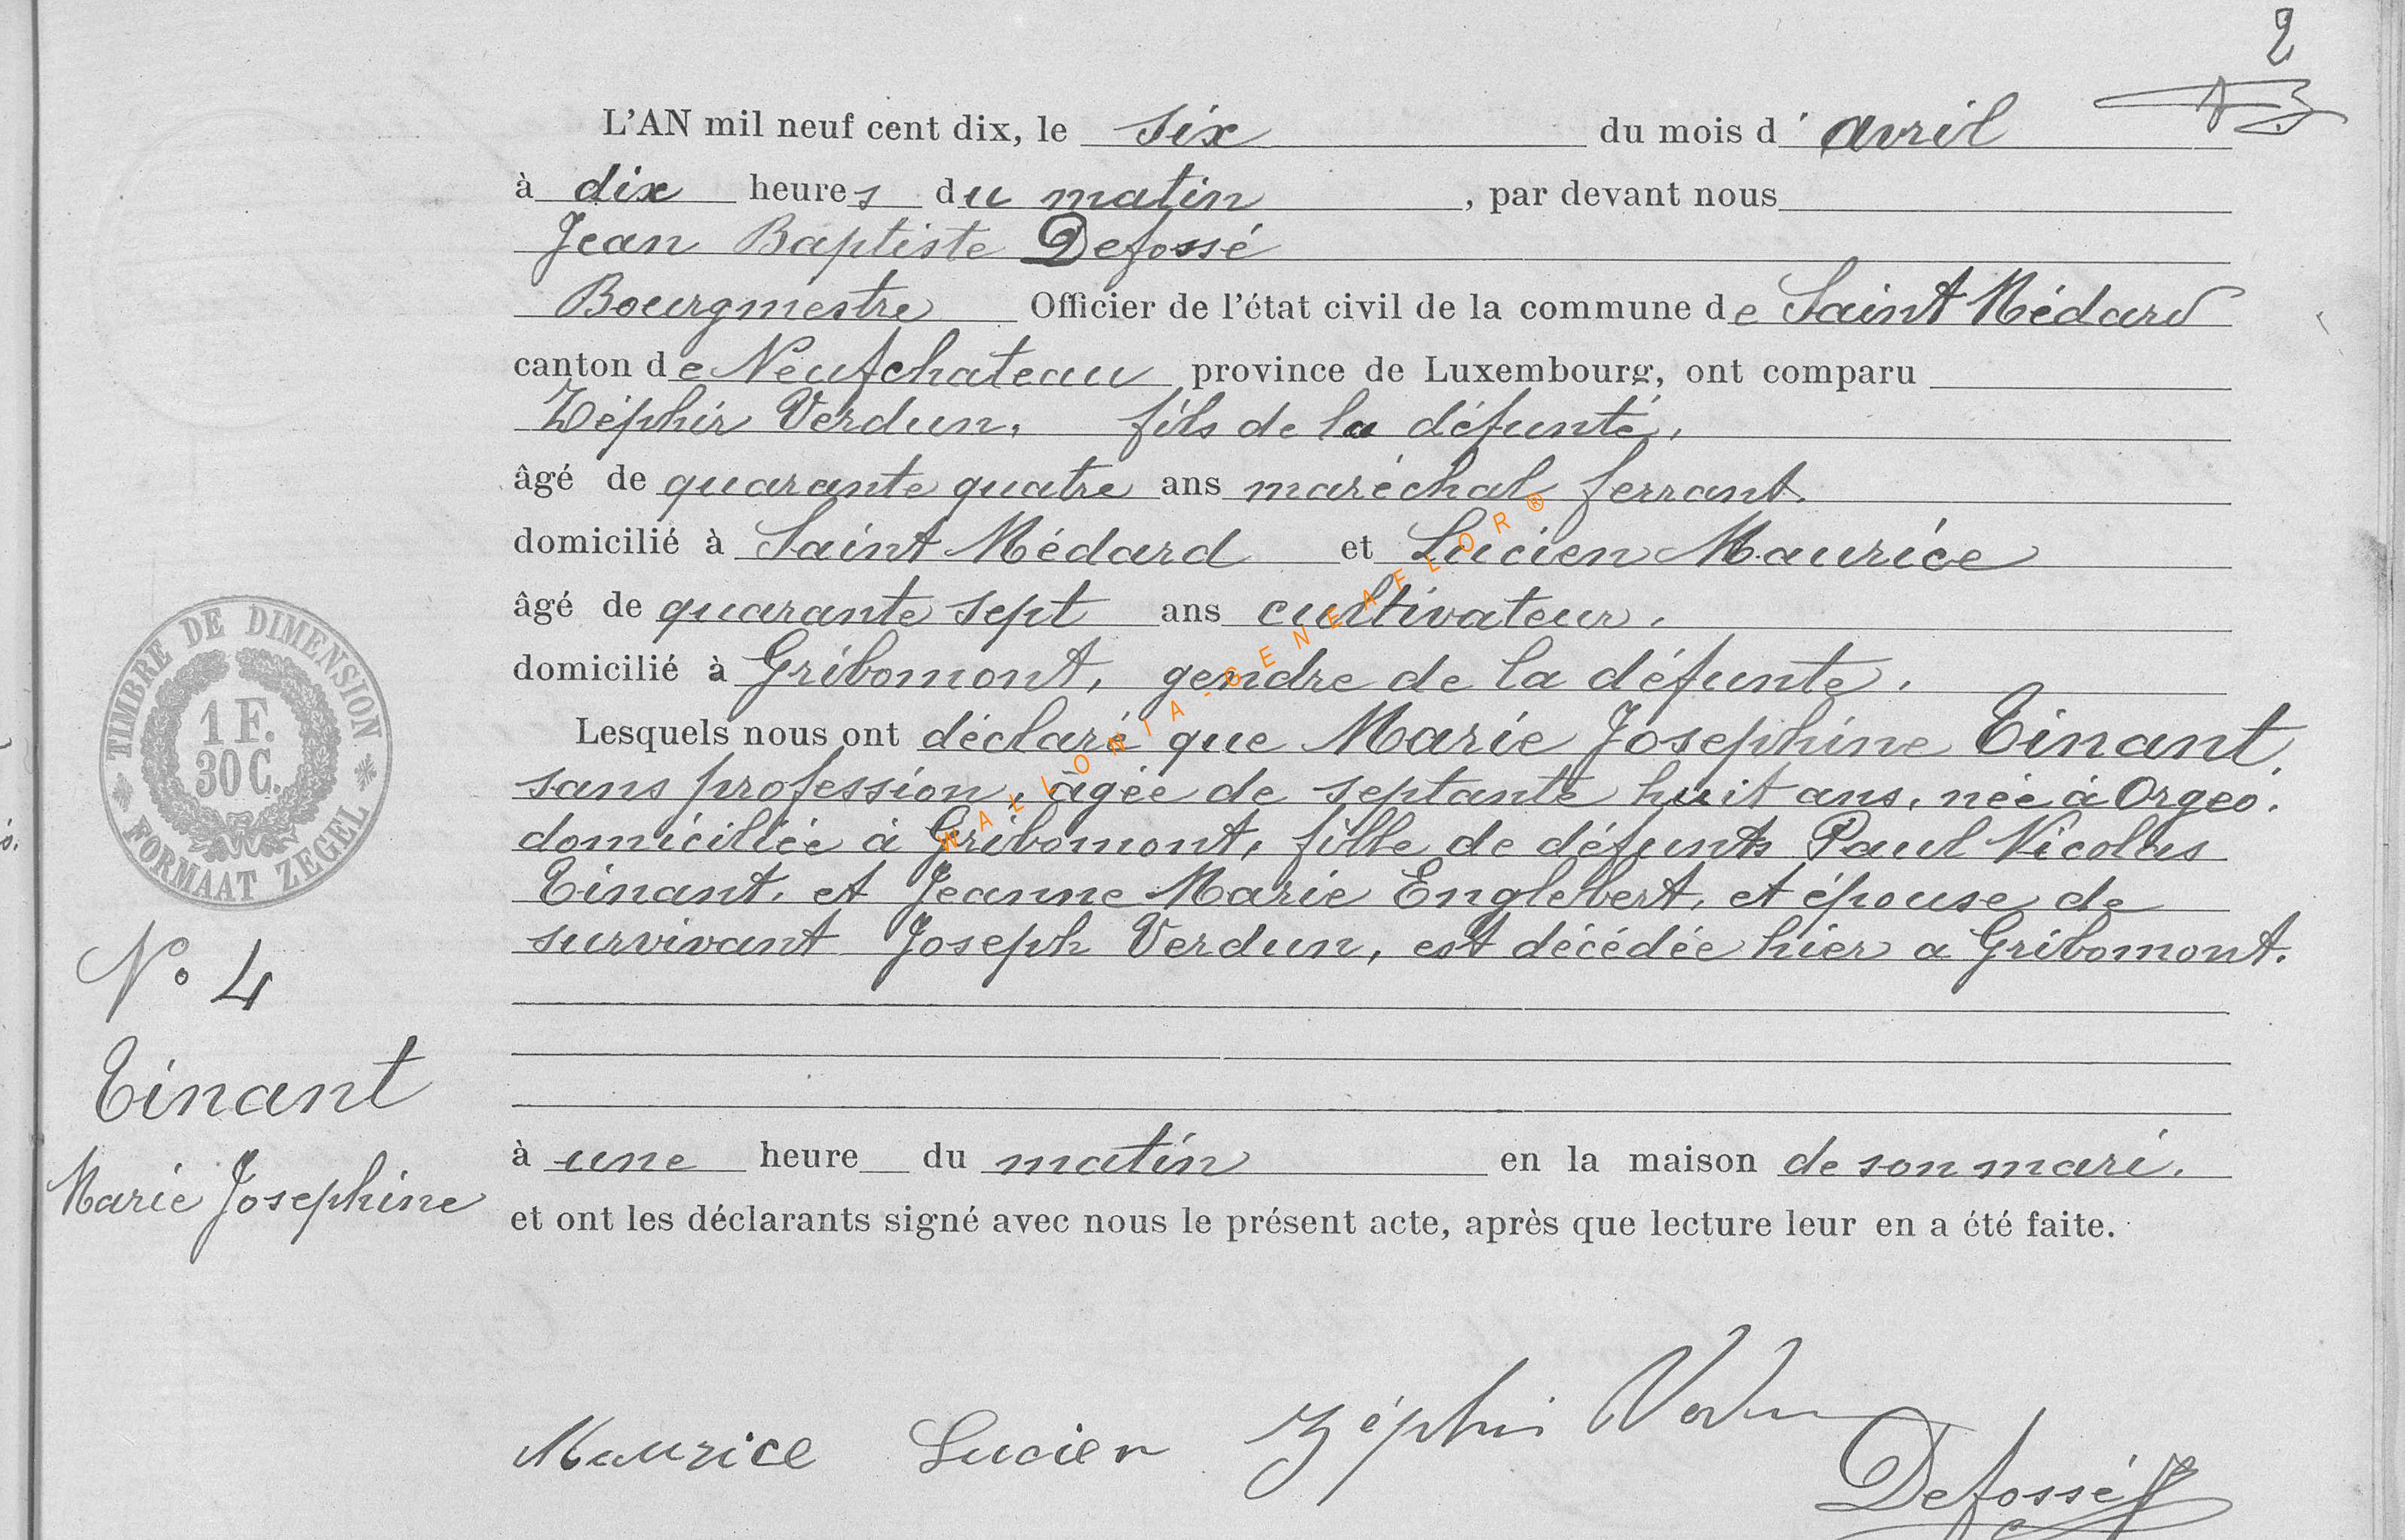 2
L'AN mil neuf cent dix, le six du mois d'avril
à dix heures du matin, par devant nous
Jean Baptiste Defossé
Bourgmestre Officier de l'état civil de la commune de Saint Médard
canton de Neufchateau province de Luxembourg, ont comparu
Zéphir Verdun, fils de la défunte,
âgé de quarante quatre ans maréchal ferrant
domicilié à Saint Médard et Lucien Maurice
âgé de quarante sept ans cultivateur,
domicilié à Gribomont, gendre de la défunte.
Lesquels nous ont déclaré que Marie Josephine Tinant,
sans profession, âgée de septante huit ans, née à Orgeo,
domiciliée à Gribomont, fille de défunts Paul Nicolas
Tinant, et Jeanne Marie Englebert, et épouse de
survivant Joseph Verdun, est décédée hier a Gribomont.
à une heure du matin en la maison de son mari.
et ont les déclarants signé avec nous le présent acte, après que lecture leur en a été faite.
Maurice Lucien Zéphir Verdun
Defossé
TIMBRE DE DIMENSION
1 F.
30 C.
FORMAAT ZEGEL
N° 4
Tinant
Marie Josephine
WALLONIA-GENEAFLOR®